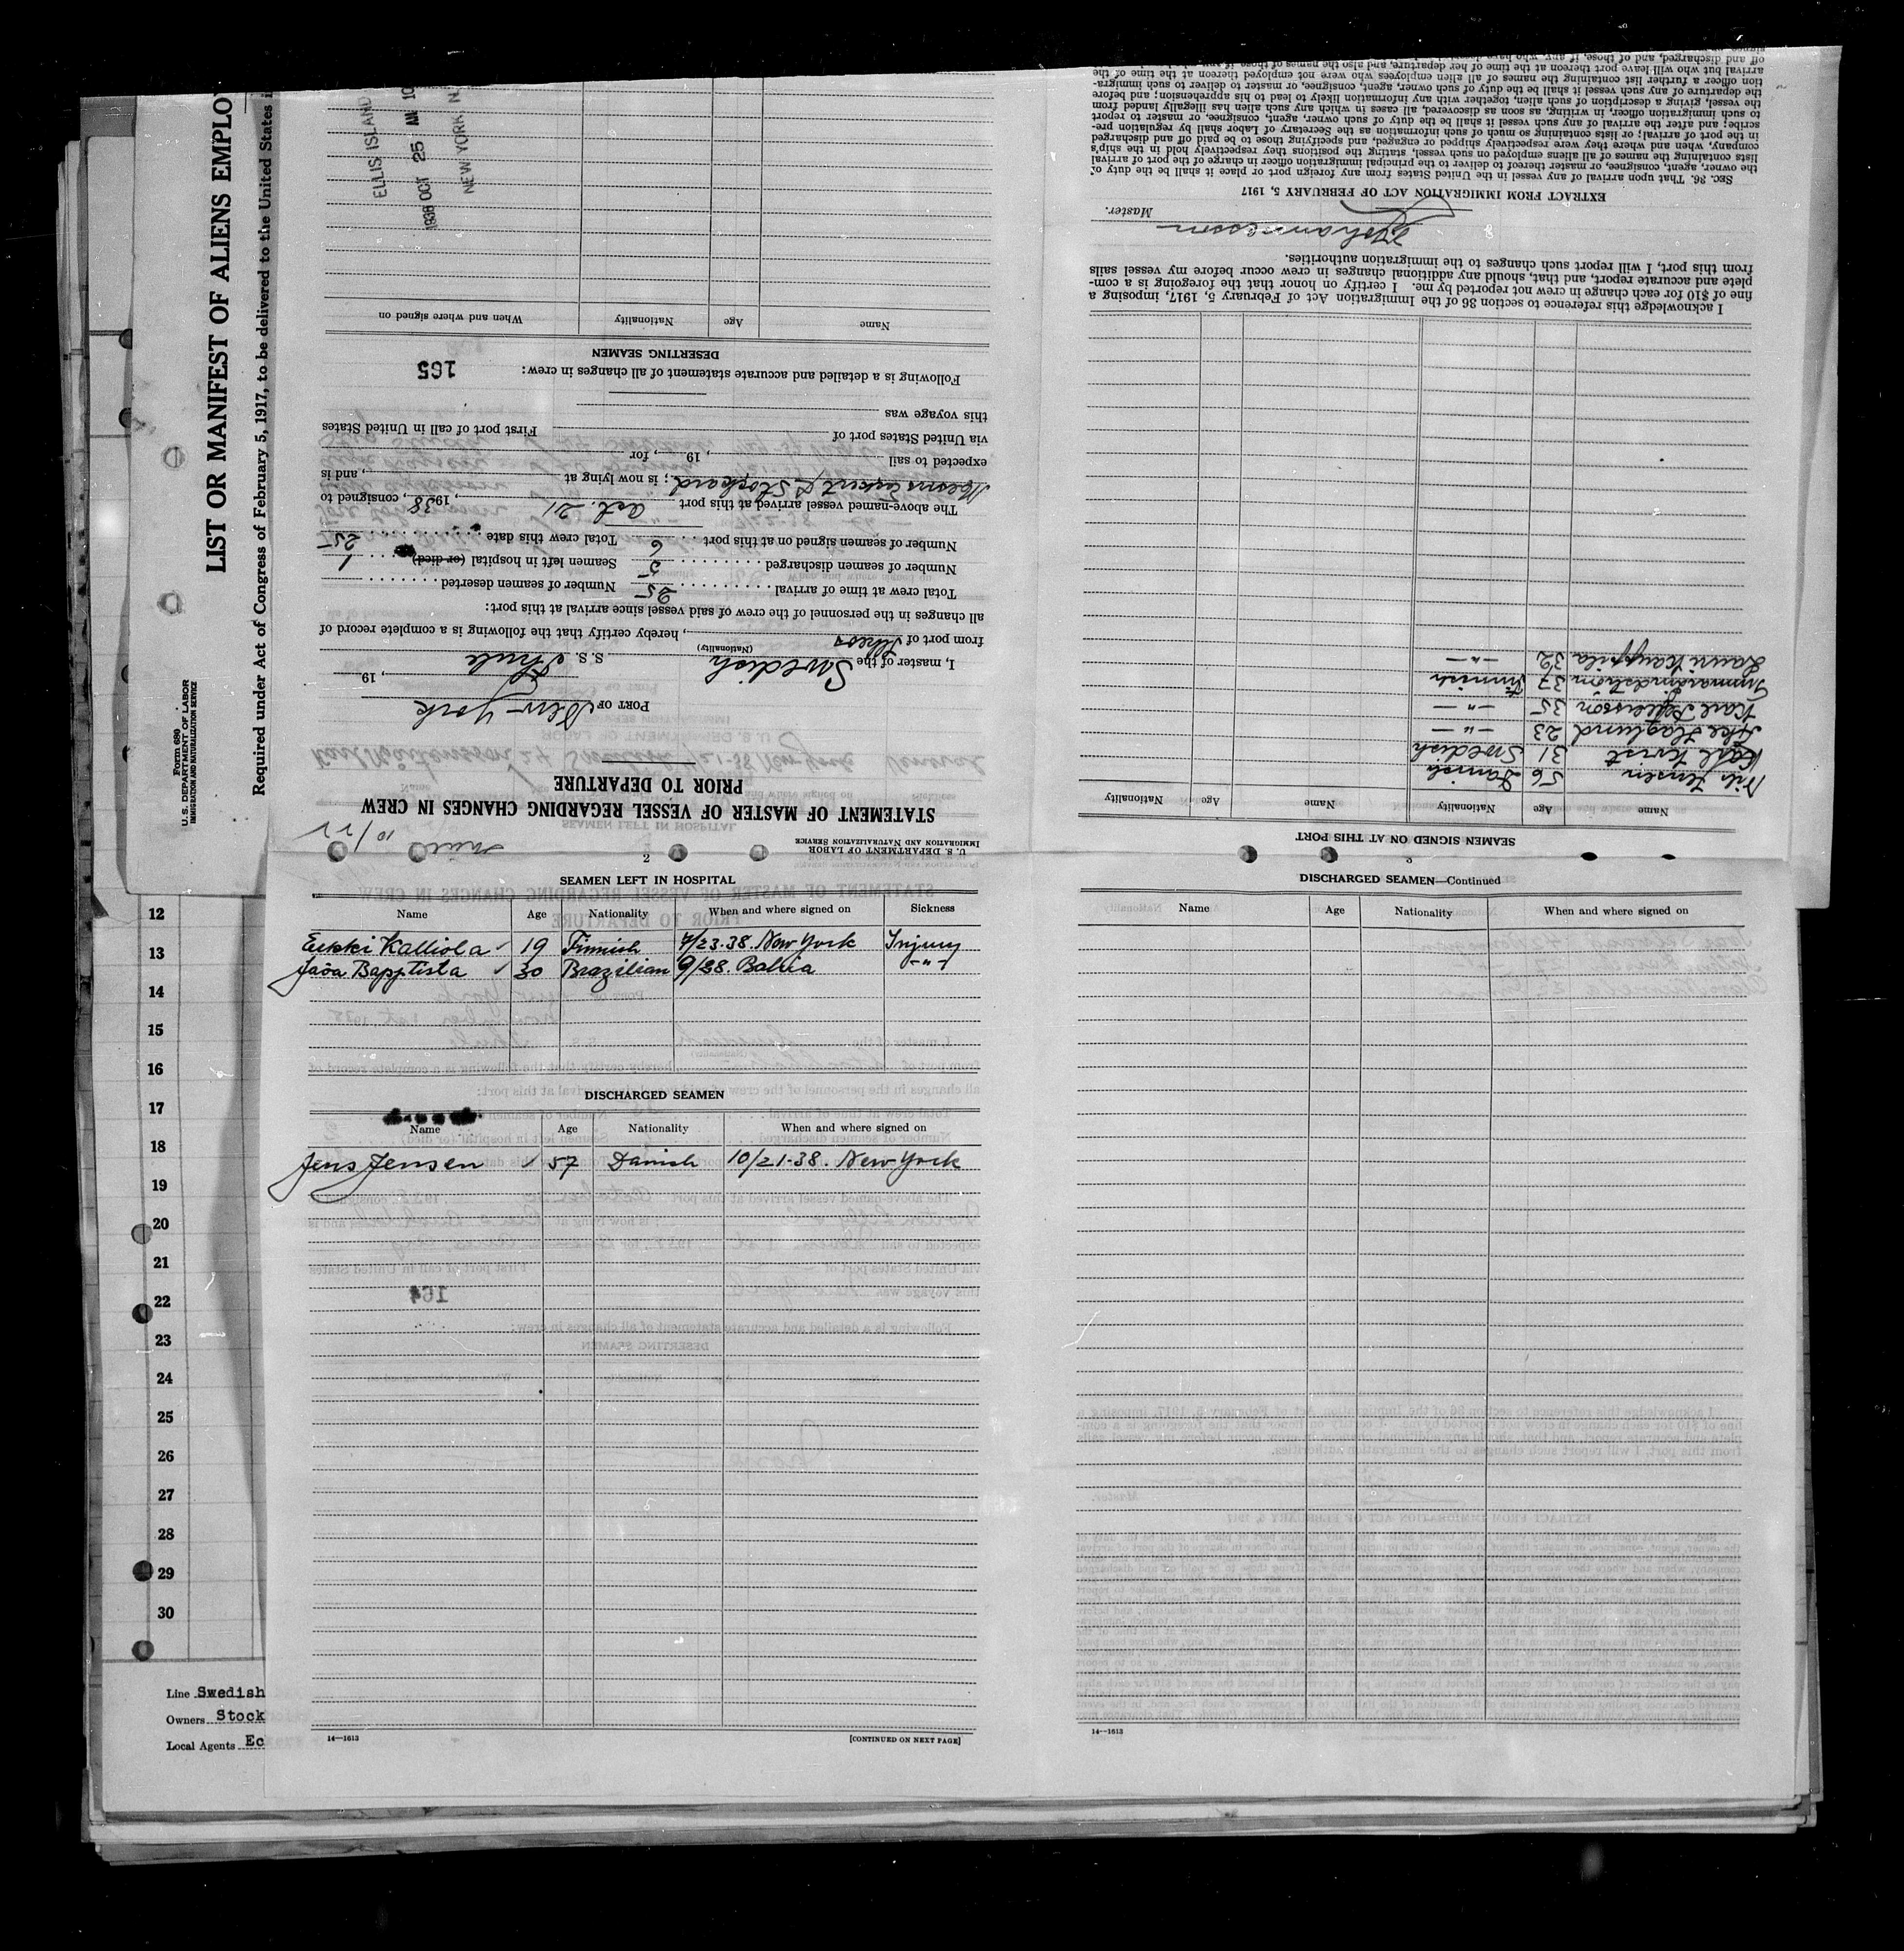 LIST OR MANIFEST OF ALIENS EMPLOY
Required under Act of Congress of February 5, 1917, to be delivered to the United States i
Form 680
U. S. DEPARTMENT OF LABOR
IMMIGRATION AND NATURALIZATION SERVICE
U. S. DEPARTMENT OF LABOR
IMMIGRATION AND NATURALIZATION SERVICE
10/22
STATEMENT OF MASTER OF VESSEL REGARDING CHANGES IN CREW
PRIOR TO DEPARTURE
PORT OF New-York
, 19
I, master of the Swedish S. S. Thule
(Nationality)
from port of , hereby certify that the following is a complete record of
all changes in the personnel of the crew of said vessel since arrival at this port:
Total crew at time of arrival 25 Number of seamen deserted
Number of seamen discharged 5 Seamen left in hospital (or died) 1
Number of seamen signed on at this port 6 Total crew this date 25
The above-named vessel arrived at this port Oct. 21, 1938, consigned to
Messrs Eckert & Stockard; is now lying at , and is
expected to sail , 19 , for
via United States port of First port of call in United States
this voyage was
Following is a detailed and accurate statement of all changes in crew: 165
DESERTING SEAMEN
Name Age Nationality When and where signed on
ELLIS ISLAND
1938 OCT 25 AM 10
NEW YORK N.
SEAMEN SIGNED ON AT THIS PORT
Name Age Nationality Name Age Nationality
Nils Jensen 56 Danish
Karl Kvist 31 Swedish
Åke Haglund 23 -"-
Karl Pettersson 35 -"-
Gunnar Lindström 37 Finnish
Lauri Kauppila 32 -"-
I acknowledge this reference to section 36 of the Immigration Act of February 5, 1917, imposing a
fine of $10 for each change in crew not reported by me. I certify on honor that the foregoing is a com-
plete and accurate report, and that, should any additional changes in crew occur before my vessel sails
from this port, I will report such changes to the immigration authorities.
Johannesson
Master.
EXTRACT FROM IMMIGRATION ACT OF FEBRUARY 5, 1917
SEC. 36. That upon arrival of any vessel in the United States from any foreign port or place it shall be the duty of
the owner, agent, consignee, or master thereof to deliver to the principal immigration officer in charge of the port of arrival
lists containing the names of all aliens employed on such vessel, stating the positions they respectively hold in the ship's
company, when and where they were respectively shipped or engaged, and specifying those to be paid off and discharged
in the port of arrival; or lists containing so much of such information as the Secretary of Labor shall by regulation pre-
scribe; and after the arrival of any such vessel it shall be the duty of such owner, agent, consignee, or master to report
to such immigration officer, in writing, as soon as discovered, all cases in which any such alien has illegally landed from
the vessel, giving a description of such alien, together with any information likely to lead to his apprehension; and before
the departure of any such vessel it shall be the duty of such owner, agent, consignee, or master to deliver to such immigra-
tion officer a further list containing the names of all alien employees who were not employed thereon at the time of the
arrival but who will leave port thereon at the time of her departure, and also the names of those, if any,
off and discharged, and of those, if any, who have
2
SEAMEN LEFT IN HOSPITAL
Name Age Nationality When and where signed on Sickness
Erkki Kalliola 19 Finnish 7/23-38. New York Injury
Jaôa Bapptista 30 Brazilian 9/38. Bahia -"-
DISCHARGED SEAMEN
Name Age Nationality When and where signed on
Jens Jensen 57 Danish 10/21-38. New York
14—1613 [CONTINUED ON NEXT PAGE]
DISCHARGED SEAMEN—Continued
Name Age Nationality When and where signed on
14—1613
12
13
14
15
16
17
18
19
20
21
22
23
24
25
26
27
28
29
30
Line Swedish
Owners Stock
Local Agents Ec
164